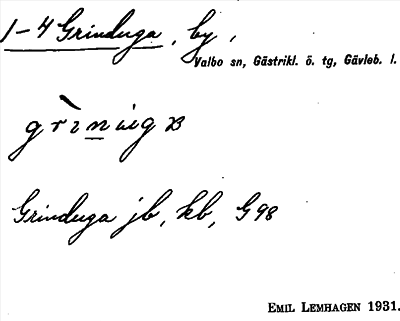 1-4 Grinduga, by,
Valbo sn, Gästrikl. ö. tg, Gävleb. l.
Grinduga jb, kb, G98
EMIL LEMHAGEN 1931.